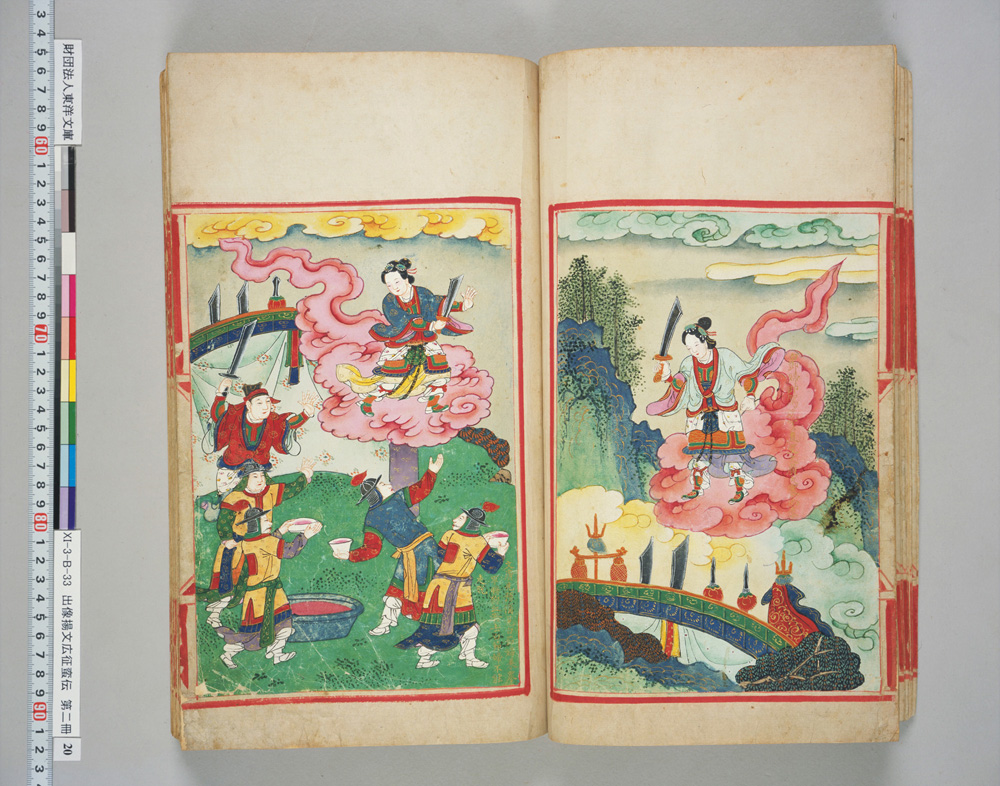 3 4 5 6 7 8 9 60 1 2 3 4 5 6 7 8 9 70 1 2 3 4 5 6 7 8 9 80 1 2 3 4 5 6 7 8 9 90 1 2 3
財団法人東洋文庫
XI-3-B-33 出像揚文広征蛮伝 第二冊 20